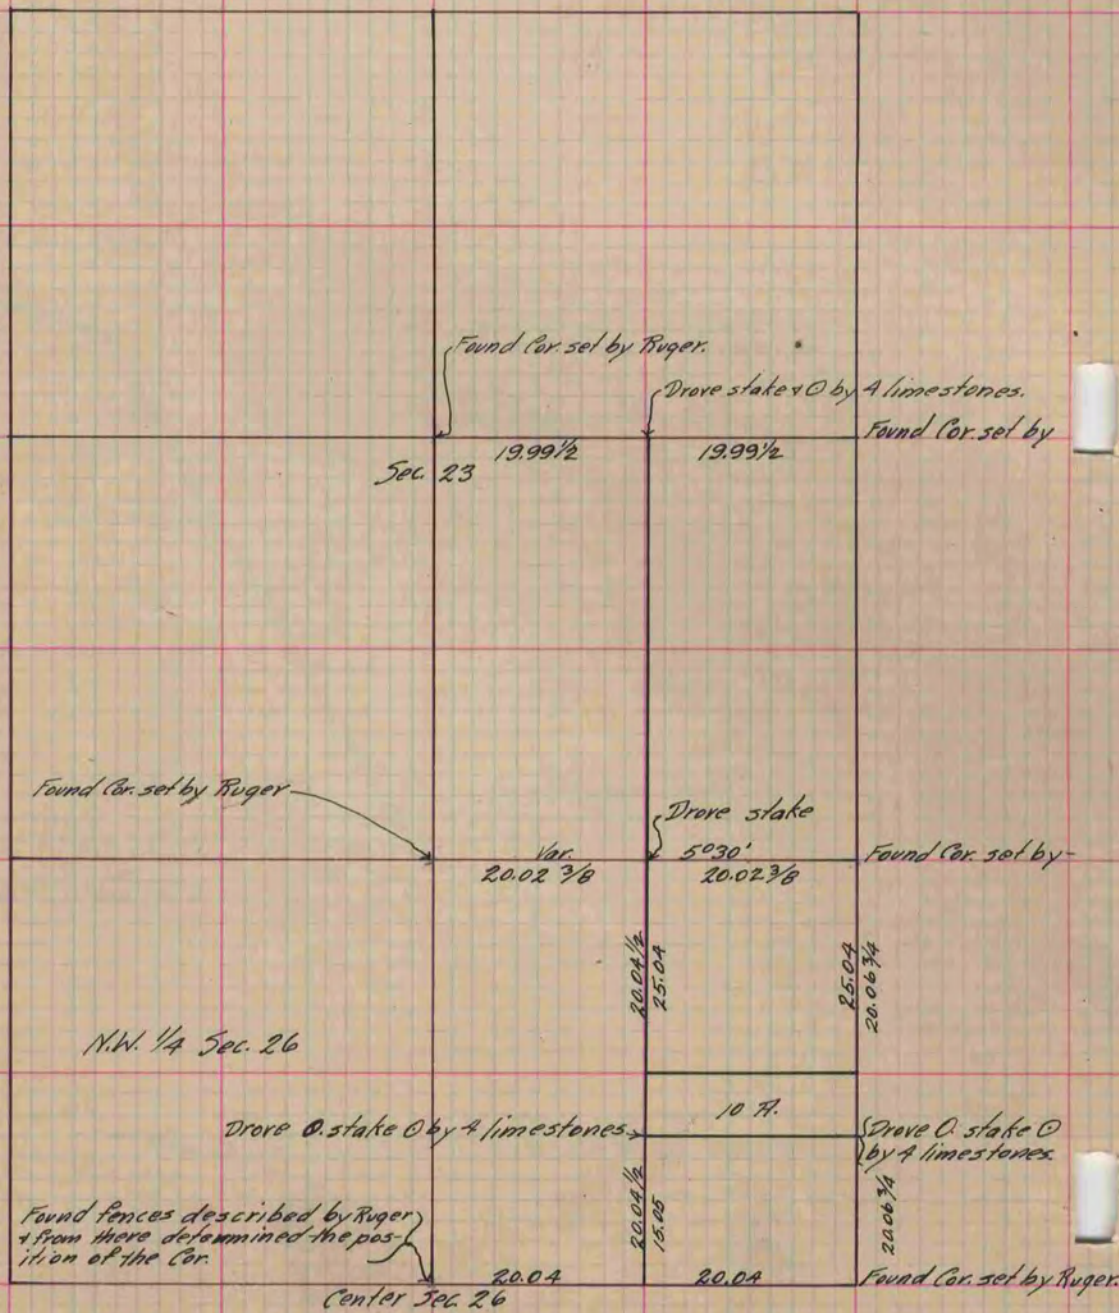 Found Cor. set by Ruger.
Drove stake & ⊙ by 4 limestones.
Found Cor. set by
19.99½
19.99½
Sec. 23
Found Cor. set by Ruger
Drove stake
Var.
5°30'
Found Cor. set by-
20.02 3/8
20.02 3/8
20.04½
25.04
25.04
20.06 3/4
N.W. 1/4 Sec. 26
10 A.
Drove O. stake ⊙ by 4 limestones.
Drove O. stake ⊙
by 4 limestones.
20.04½
15.05
20.06 3/4
Found fences described by Ruger
& from there determined the pos-
ition of the Cor.
20.04
20.04
Found Cor. set by Ruger.
Center Sec. 26